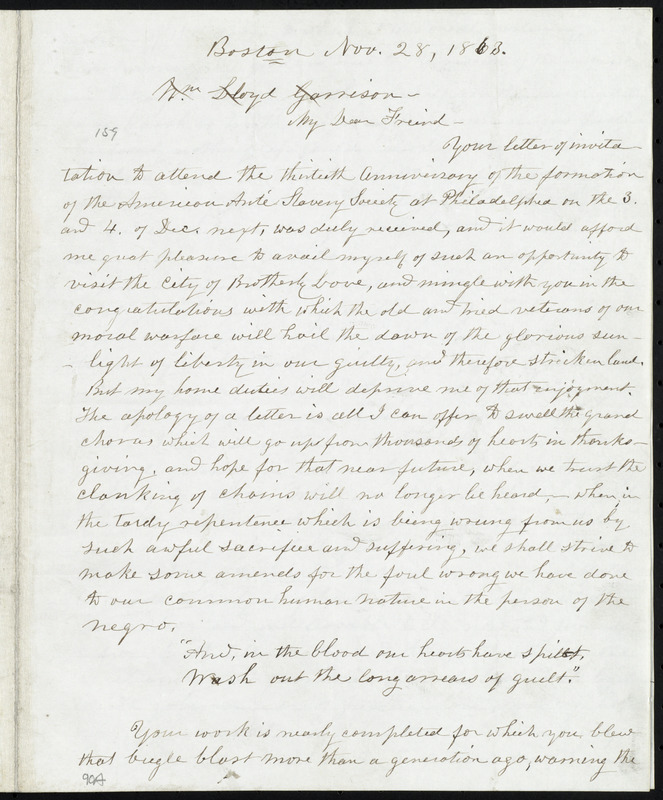 Boston Nov. 28, 1863.
Wm Lloyd Garrison -
159
My Dear Freind -
Your letter of invita
tation to attend the thirtieth Anniversary of the formation
of the American Anti Slavery Society at Philadelphia on the 3.
and 4. of Dec. next, was duly received, and it would afford
me great pleasure to avail myself of such an opportunity to
visit the City of Brotherly Love, and mingle with you in the
congratulations with which the old and tried veterans of our
moral warfare will hail the dawn of the glorious sun-
- light of liberty in our guilty, and therefore stricken land.
But my home duties will deprive me of that enjoyment.
The apology of a letter is all I can offer to swell the grand
chorus which will go up from thousands of hearts in thanks-
giving, and hope for that near future, when we trust the
clanking of chains will no longer be heard, - when, in
the tardy repentance which is being wrung from us by
such awful sacrifice and suffering, we shall strive to
make some amends for the foul wrong we have done
to our common human nature in the person of the
negro.
"And, in the blood our hearts have spilt,
Wash out the long arrears of guilt."
Your work is nearly completed for which you blew
that bugle blast more than a generation ago, warning the
90A